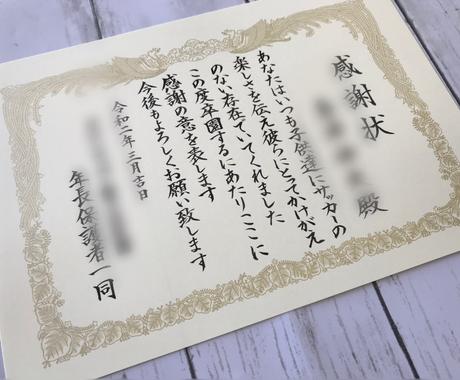 感謝状
殿
あなたはいつも子供達にサッカーの
楽しさを伝え彼らにとってかけがえ
のない存在でいてくれました
この度卒園するにあたりここに
感謝の意を表します
今後もよろしくお願い致します
令和二年三月吉日
年長保護者一同